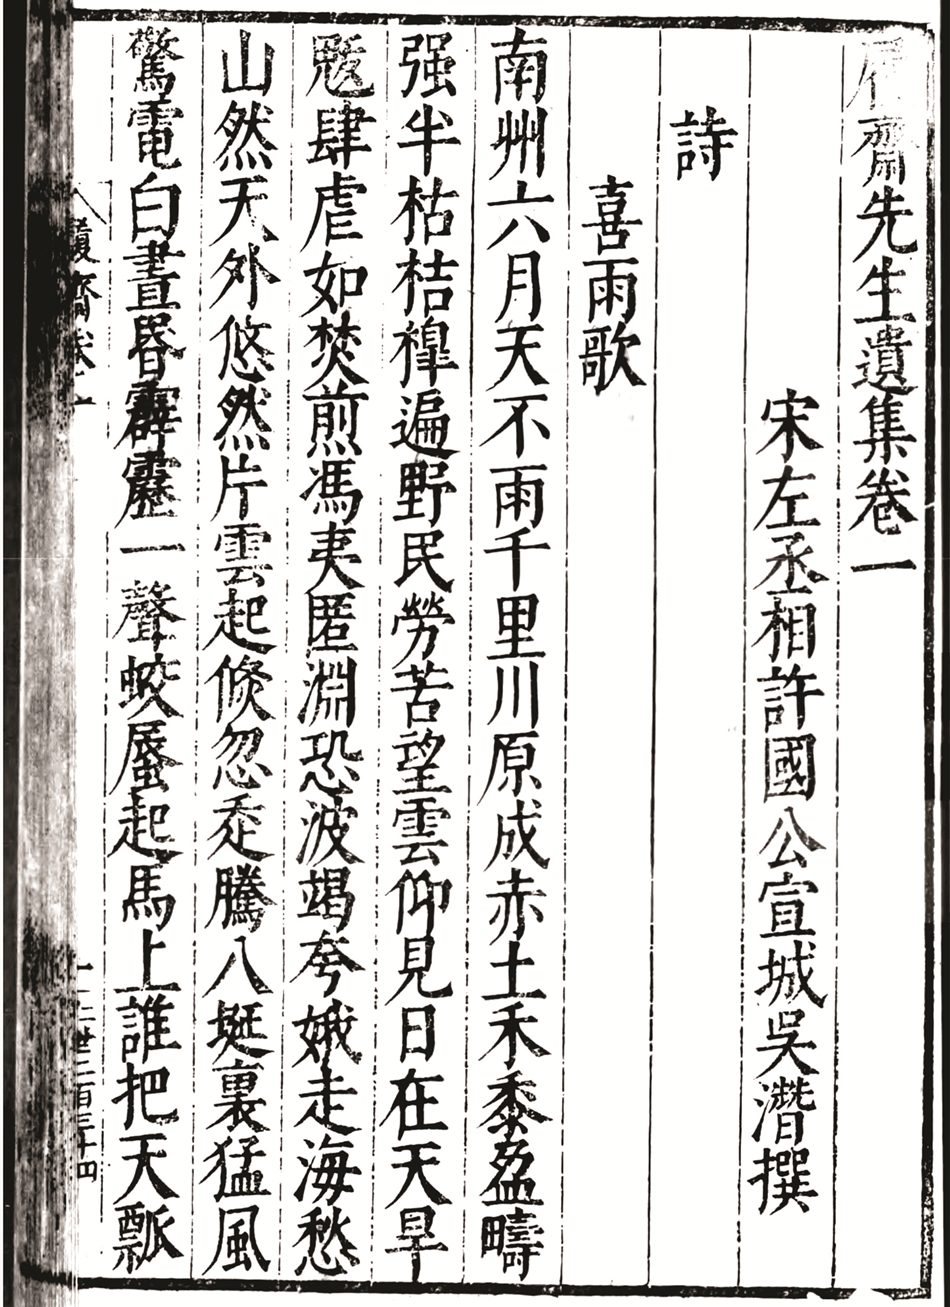 履齋先生遺集卷一
宋左丞相許國公宣城吳潛撰
詩
喜雨歌
南州六月天不雨千里川原成赤土禾黍盈疇
强半枯桔槹遍野民勞苦望雲仰見日在天旱
魃肆虐如焚煎馮夷匿淵恐波竭夸娥走海愁
山然天外悠然片雲起倐忽奔騰八埏裏猛風
驚電白晝昏霹靂一聲蛟蜃起馬上誰把天瓢
履齋